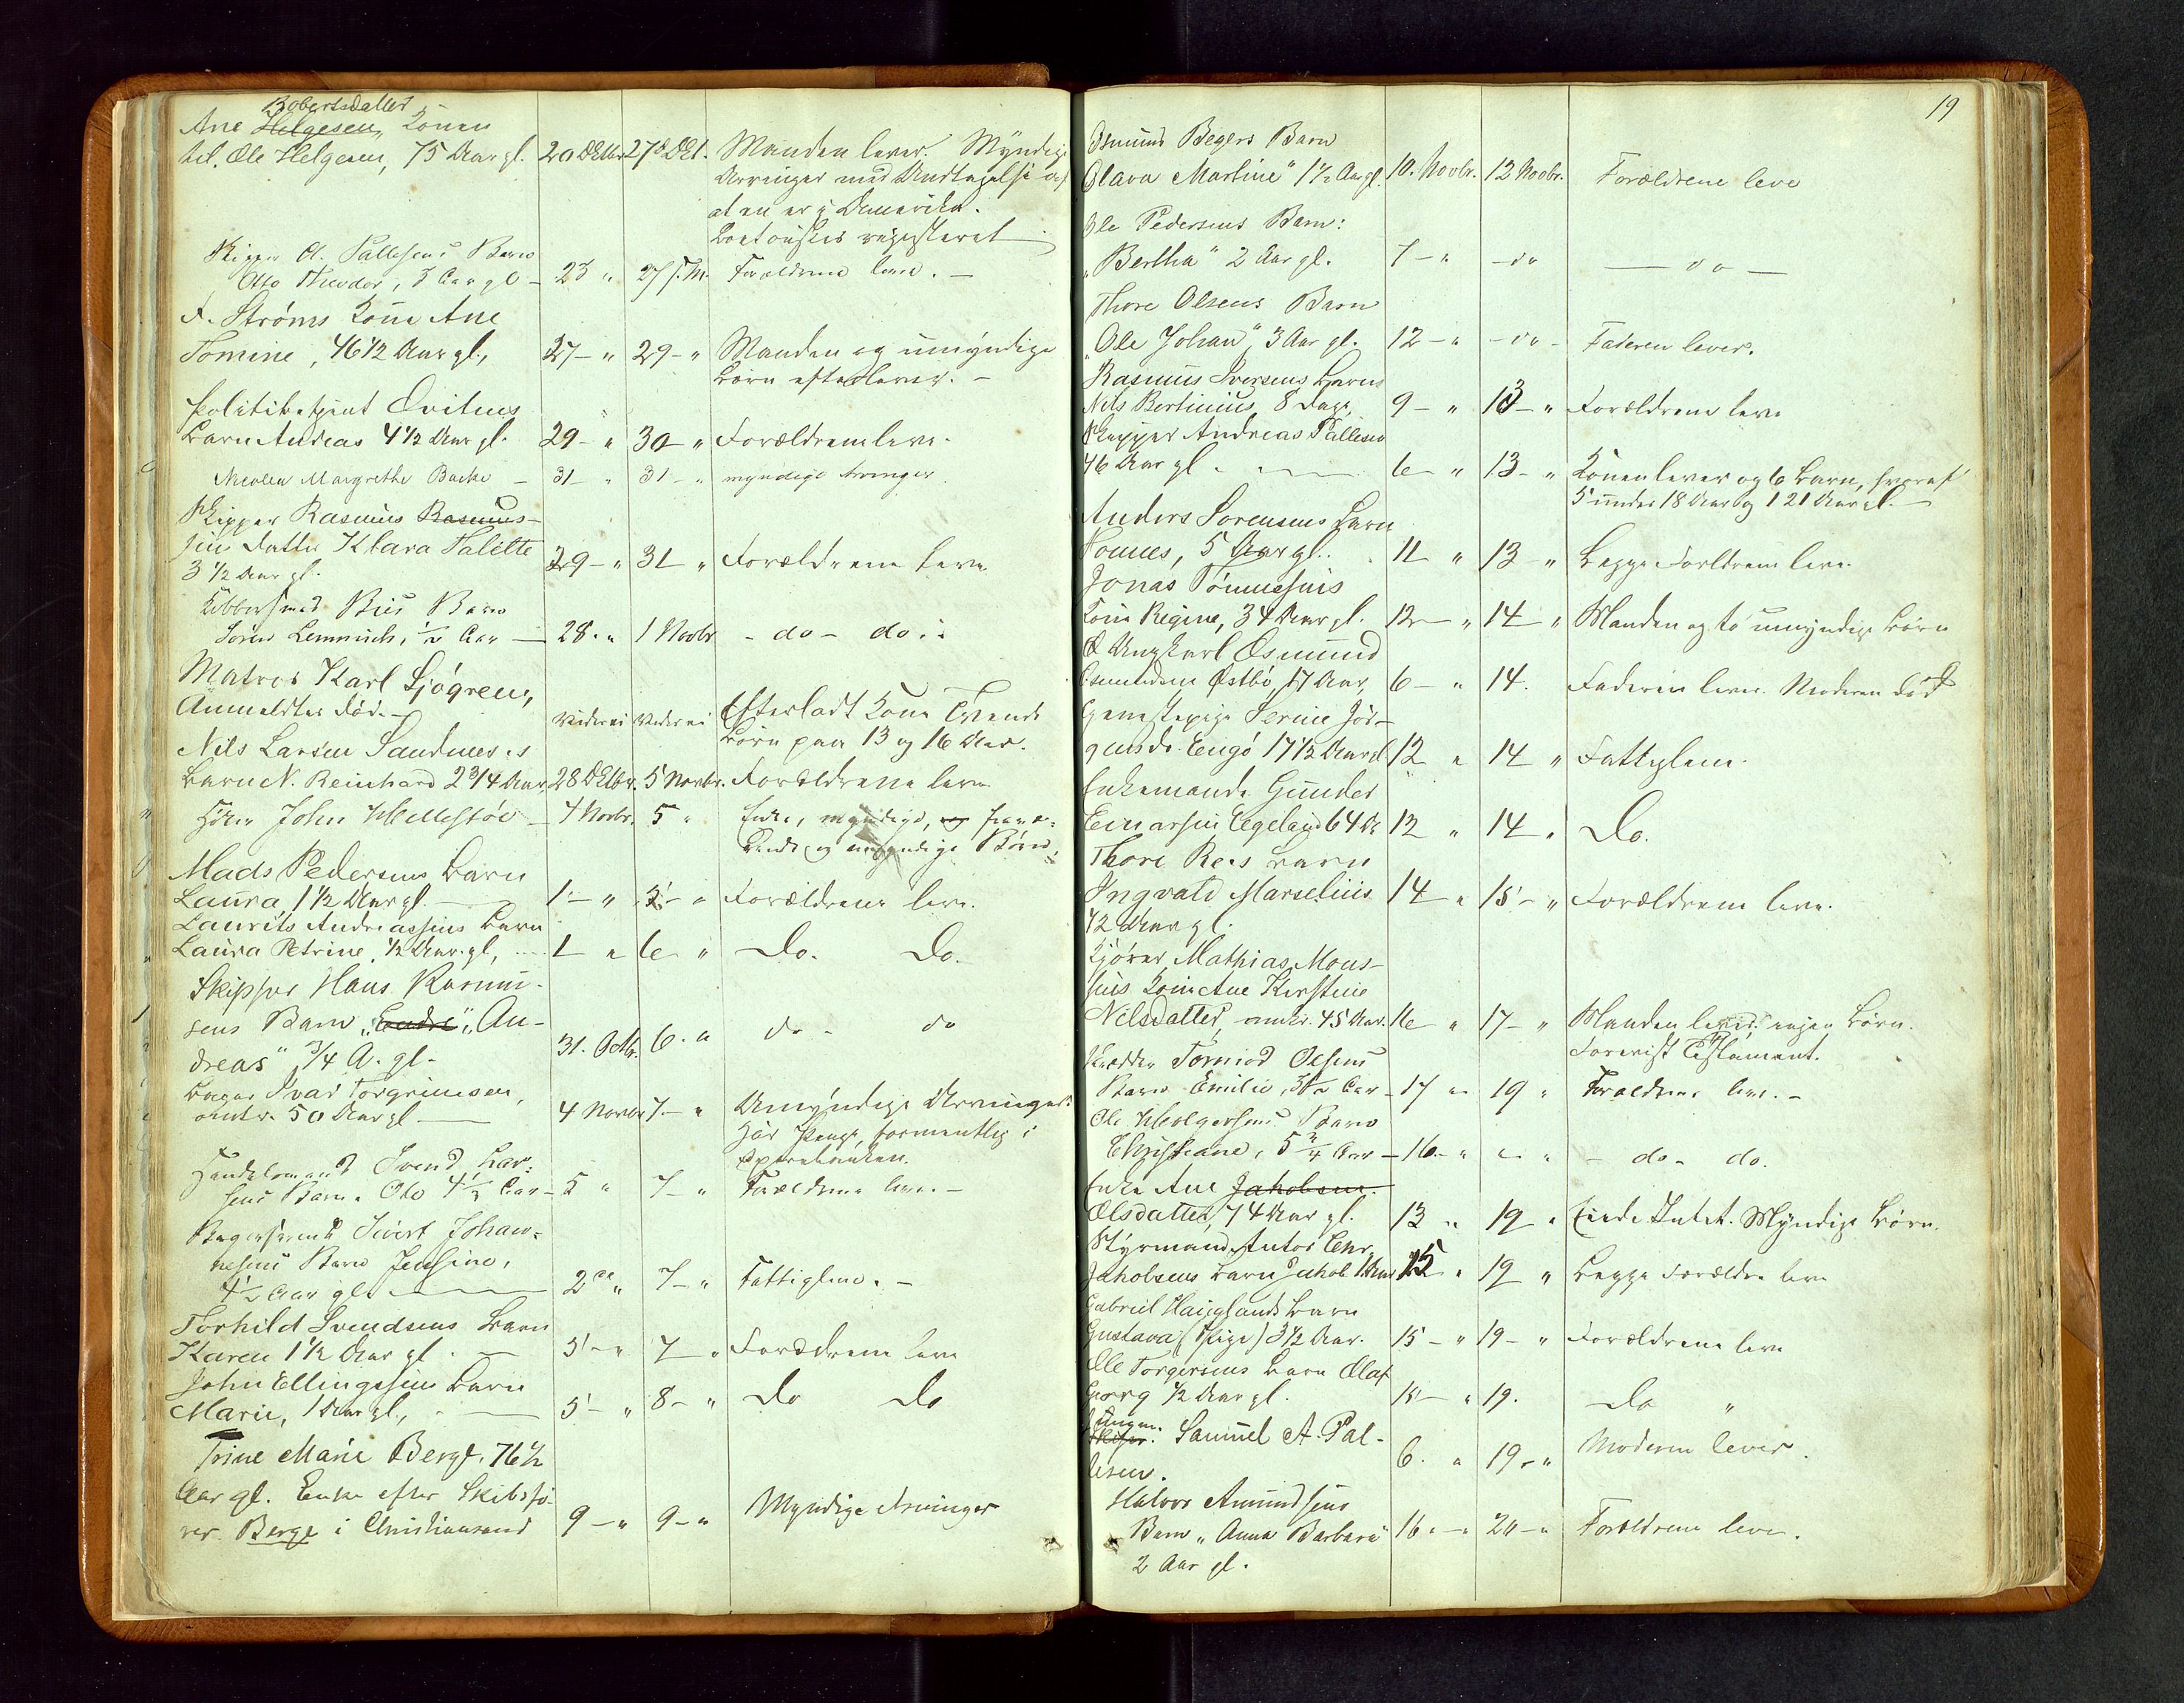 Robertsdatter
Ane Helgesen, Konen
til Ole Helgesen, 75 Aar gl. 20 Oktbr 27de Okt. Manden lever. Myndige
Arvinger med Undtagelse af
at en er i Amerika.
registeret
Skipper A. Pallesens Barn
Otto Theodor, 3 Aar gl. – 23 " 27 f. M. Forældrene leve. –
F. Strøms Kone Ane
Tomine, 46 1/2 Aar gl., 27 – " 29 – " Manden og umyndige
Børn efterlever. –
Politibetjent Qvitnes
Barn Andreas 4 1/2 Aar gl. 29 – " 30 " Forældrene leve.
Nicolea Margrethe Backe – 31 – " 31 – " myndige Arvinger.
Skipper Rasmus Rasmus-
sen Datter Klara Talette
3 1/2 Aar gl. 29 – " 31 " Forældrene leve
Kobbersmed Bies Barn
Sören Lemmich, 1/2 Aar – 28. " 1 Novbr – do – do.
Matros Karl Sjögren,
Anmeldtes död. – Veides ei Vedes ei Efterladt Kone Tvende
Börn paa 13 og 16 Aar.
Nils Larsen Sandnes's
Barn N. Reinhard 2 3/4 Aar, 28 Oktbr. 5 Novbr. Forældrene leve
John Hellestöe – 4 Novbr. 5 " Enke, myndige, og fravæ-
rende og umyndige Börn.
Mads Pedersens Barn
Laura 1 1/2 Aar gl. – 1 – " 5 – " Forældrene leve.
Laurits Andreassens Barn
Laura Petrine, 1/2 Aar gl, 1 " 6 " Do. Do.
Skipper Hans Rasmus-
sens Barn "Endre" "An-
dreas" 3/4 A. gl. 31. Octbr. 6. " do – do
Bager Ivar Torgrimsen,
omtr. 50 Aar gl – 4 Novbr 7 – " Umyndige Arvinger.
Har Penge, formentlig i
Sparebanken.
Handelsmand Svend Lar-
sens Barn Olo 4 1/2 Aar – 5 " 7 – " Forældrene leve. –
Bagersvend Sivert Johan-
nesens Barn Jensine,
4 1/2 Aar gl. – 2de " 7 – " Fattiglem. –
Torhild Svendsens Barn
Karen 1 1/2 Aar gl. – 5 – " 7 " Forældrene leve
John Ellingsens Barn
Marie, 1 Aar gl., – 5 – " 8 – " Do Do
Trine Marie Berge, 76 1/2
Aar gl. Enke efter Skibsfö-
rer Berge i Christiansand 9 – " 9 – " Myndige Arvinger
19
Osmund Begers Barn
Olava Martine" 1 1/2 Aar gl. 10. Novbr. 12 Novbr. Forældrene leve
Ole Pedersens Barn:
"Bertha" 2 Aar gl. 7 – " – do – do –
Thore Olsens Barn
"Ole Johan", 3 Aar gl. 12 – " – do – Faderen lever.
Rasmus Iversens Barn
Nils Bertinius, 8 Dage, 9 – " 13 – " Forældrene leve
Skipper Andreas Pallesen
46 Aar gl. – 6 – " 13 – " Konen lever og 6 Barn, hvoraf
5 under 18 Aar og 1 21 Aar gl. –
Anders Sorensens Barn
Tomes, 5 Aar gl. 11 " 13 " Begge Forldrene leve.
Jonas Tönnesens
Kone Regine, 34 Aar gl. 12 – " 14 – " Manden og to umyndige Börn
Ungkarl Osmund
Osmundsen Østbö, 17 Aar, 6 – " 14. Faderen lever. Moderen död
Tjenestepige Serine Jör-
gensdr. Engö 17 1/2 Aar gl 12 " 14 " Fattiglem.
Enkemand Gunder
Einarsen Egeland 64 Ar 12 " 14 " Do.
Thore Rees Barn
Ingvald Marselius 14 " 15 – " Forældrene leve.
1/2 Aar gl.
Kjörer Mathias Mons-
sens Kone Ane Kirstine
Nelsdatter, omtr. 45 Aar. 16 " 17 – " Manden lever. ingen Börn.
Forevist Testament.
Skrædder Tormod Olsens
Barn Emilie, 3 1/2 Aar – 17 " 19 " Forældrene leve. –
Ole Holgersens Barn
Christiane, 5 3/4 Aar – 16 – " " " – do – do.
Enke Ane Jakobsen
Olsdatter, 74 Aar gl. 13 " 19 " Eiede Intet. Myndige Börn.
Styrmand Antos Chr.
Jakobsens Barn Jakob 1 Aar 15 " 19 " Begge Forældre leve
Gabriel Hauglands Barn
Gustava (Pige) 3 1/2 Aar. 15 – " 19 – " Forældrene leve
Ole Torgersens Barn Olaf
Georg 1/2 Aar gl. 15 – " 19. Do "
Samuel A. Pal-
lesen. 6. " 19 – " Moderen lever.
Halvor Amundsens
Barn "Anna Barbara" 16 – " 20 – " Forældrene leve.
2 Aar gl.